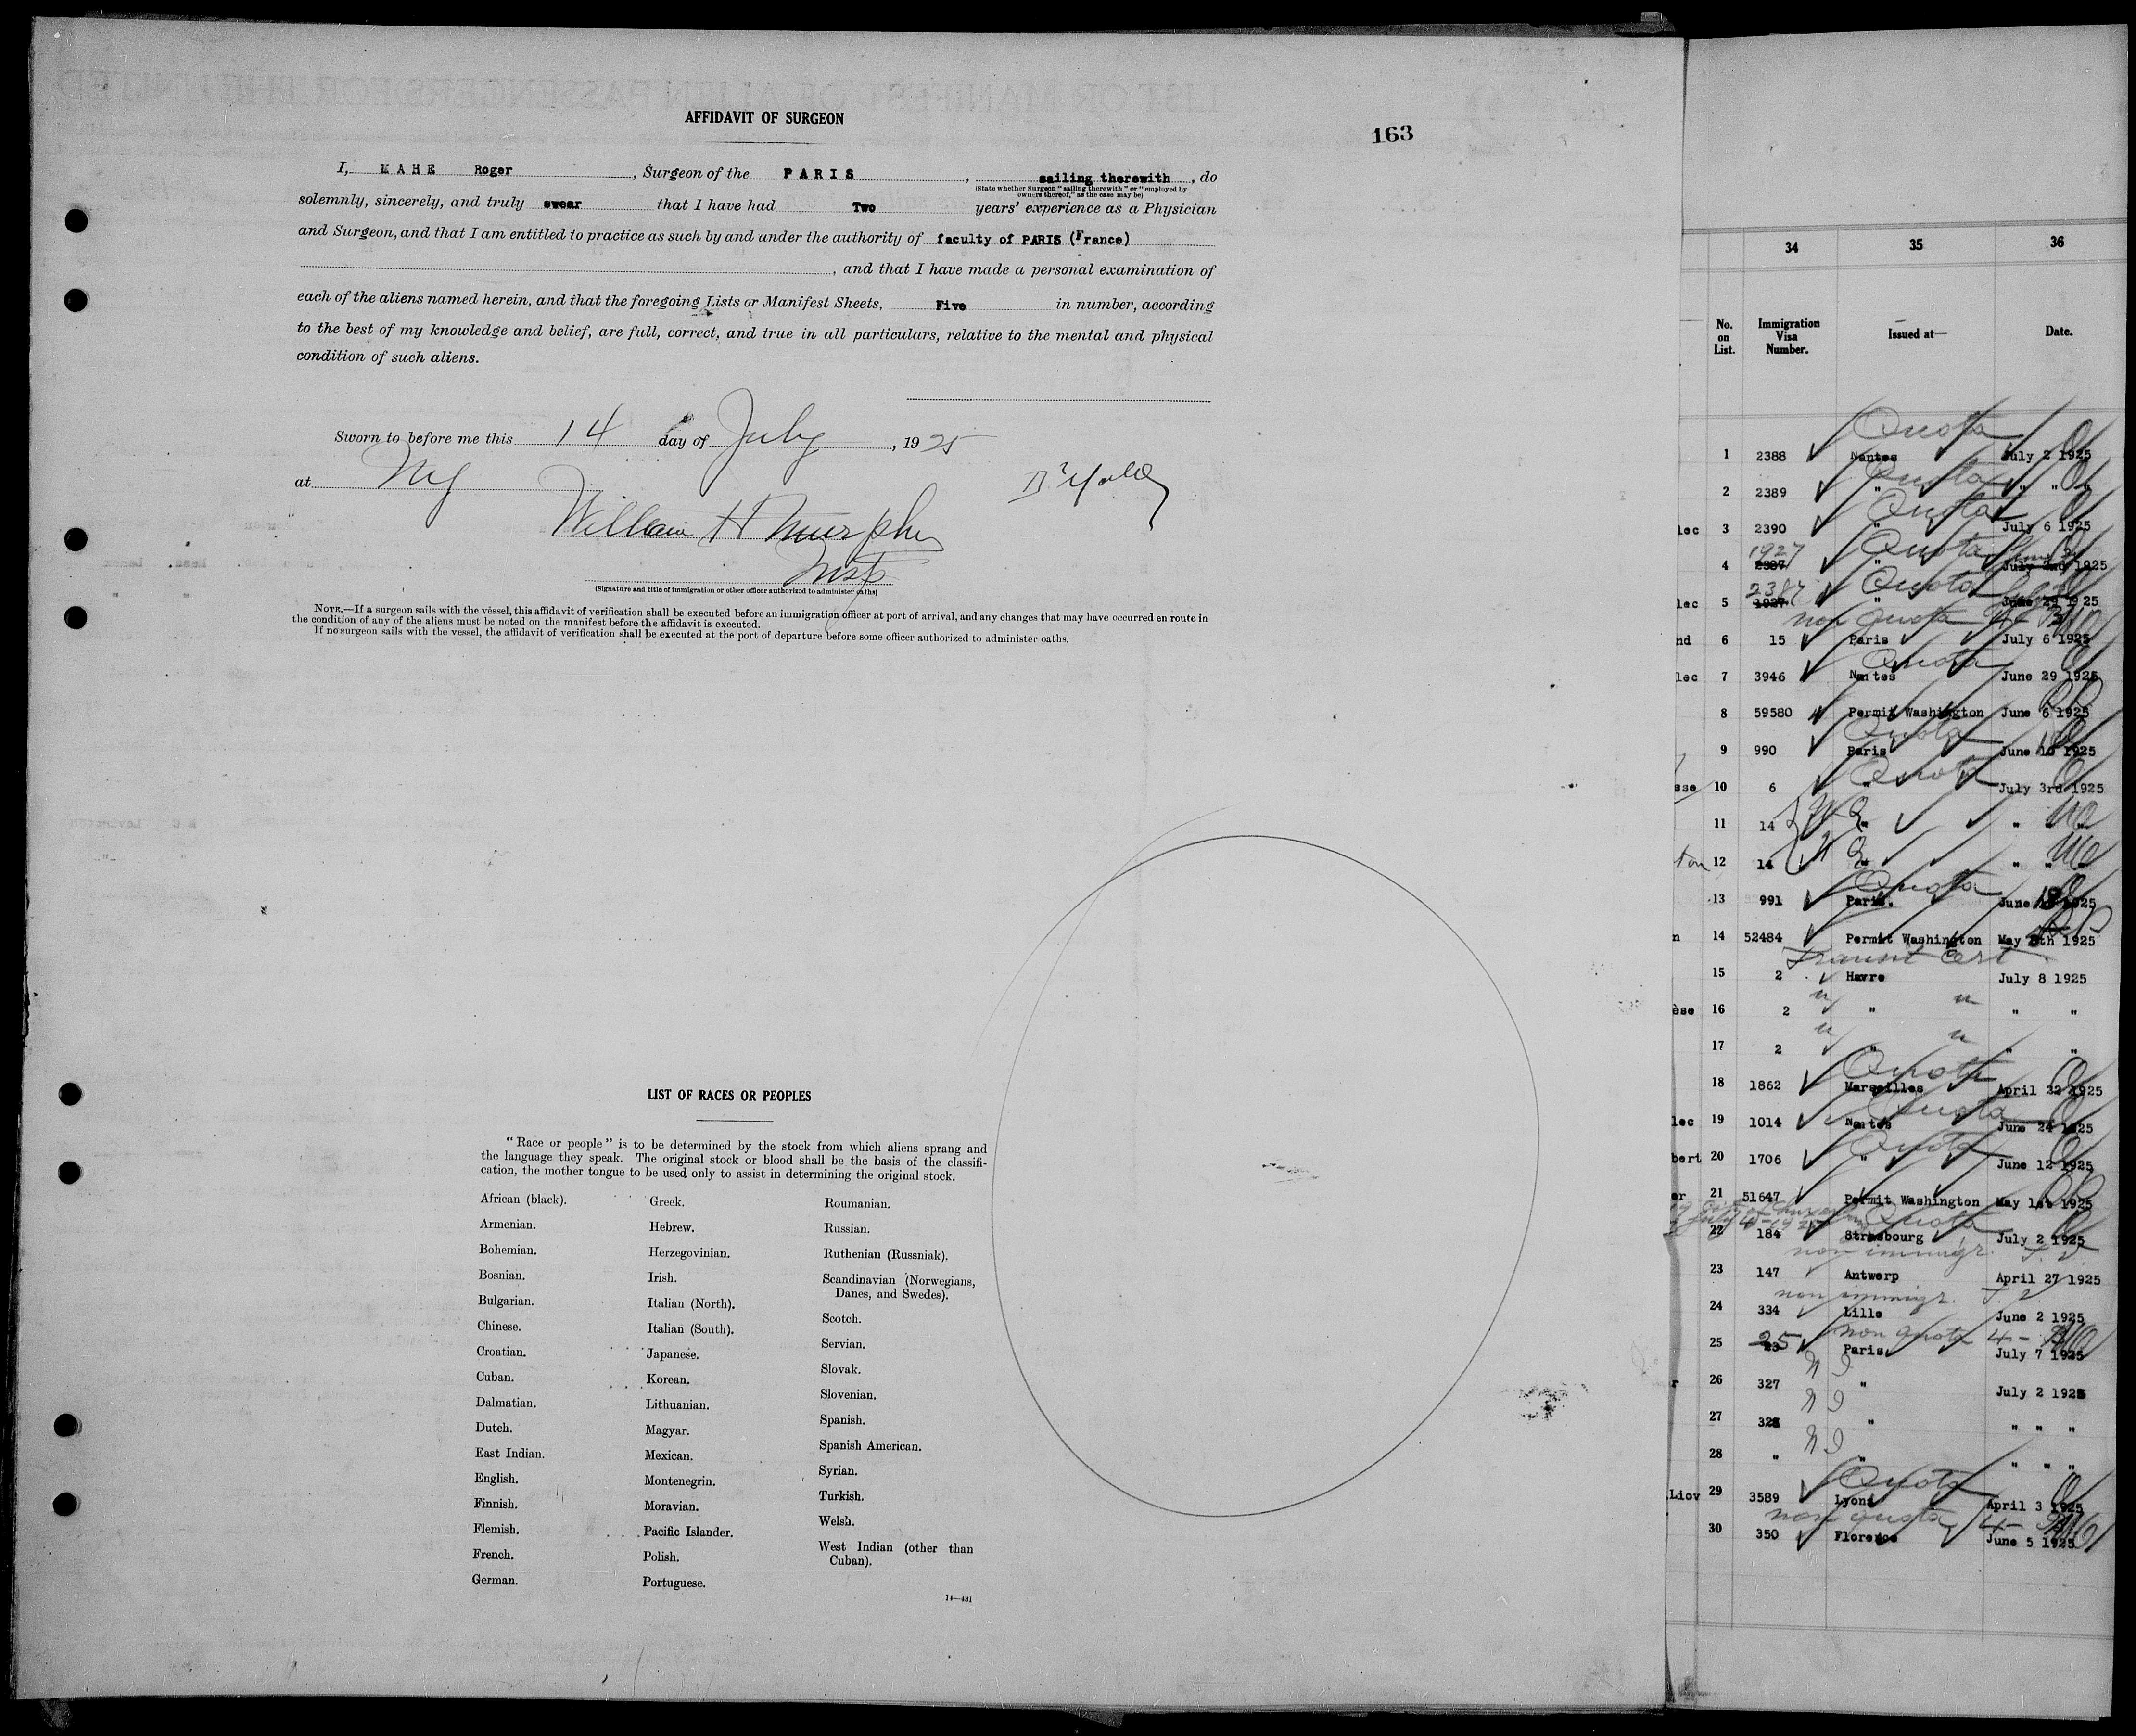 AFFIDAVIT OF SURGEON
163
I, MAHE Roger, Surgeon of the PARIS, sailing therewith, do
(State whether Surgeon "sailing therewith" or "employed by
owners thereof," as the case may be)
solemnly, sincerely, and truly swear that I have had Two years' experience as a Physician
and Surgeon, and that I am entitled to practice as such by and under the authority of faculty of PARIS (France)
, and that I have made a personal examination of
each of the aliens named herein, and that the foregoing Lists or Manifest Sheets, Five in number, according
to the best of my knowledge and belief, are full, correct, and true in all particulars, relative to the mental and physical
condition of such aliens.
Sworn to before me this 14 day of July, 1925
at NY
William H Murphy
Insp
(Signature and title of immigration or other officer authorized to administer oaths)
NOTE.—If a surgeon sails with the vessel, this affidavit of verification shall be executed before an immigration officer at port of arrival, and any changes that may have occurred en route in
the condition of any of the aliens must be noted on the manifest before the affidavit is executed.
If no surgeon sails with the vessel, the affidavit of verification shall be executed at the port of departure before some officer authorized to administer oaths.
LIST OF RACES OR PEOPLES
"Race or people" is to be determined by the stock from which aliens sprang and
the language they speak. The original stock or blood shall be the basis of the classifi-
cation, the mother tongue to be used only to assist in determining the original stock.
African (black).
Armenian.
Bohemian.
Bosnian.
Bulgarian.
Chinese.
Croatian.
Cuban.
Dalmatian.
Dutch.
East Indian.
English.
Finnish.
Flemish.
French.
German.
Greek.
Hebrew.
Herzegovinian.
Irish.
Italian (North).
Italian (South).
Japanese.
Korean.
Lithuanian.
Magyar.
Mexican.
Montenegrin.
Moravian.
Pacific Islander.
Polish.
Portuguese.
Roumanian.
Russian.
Ruthenian (Russniak).
Scandinavian (Norwegians,
Danes, and Swedes).
Scotch.
Servian.
Slovak.
Slovenian.
Spanish.
Spanish American.
Syrian.
Turkish.
Welsh.
West Indian (other than
Cuban).
14—431
34 35 36
No. on List. Immigration Visa Number. Issued at— Date.
Quota
1 2388 Nantes July 2 1925
Quota
2 2389 " " " "
Quota
lec 3 2390 " July 6 1925
1927 Quota
4 2387 " July 2nd 1925
2387 Quota
lec 5 1927 " June 29 1925
non Quota 4-
nd 6 15 Paris July 6 1925
Quota
lec 7 3946 Nantes June 29 1925
8 59580 Permit Washington June 6 1925
Quota
9 990 Paris June 10 1925
Quota
sse 10 6 " July 3rd 1925
N Q
11 14 " " " "
N Q
ton 12 14 " " " "
Quota
13 991 Paris. June 1925
n 14 52484 Permit Washington May 8th 1925
Transit Cert
15 2 Havre July 8 1925
16 2 " " "
17 2 " " "
Quota
18 1862 Marseilles April 22 1925
Quota
lec 19 1014 Nantes June 24 1925
Quota
bert 20 1706 " June 12 1925
er 21 51647 Permit Washington May 1st 1925
Quota
22 184 Strasbourg July 2 1925
non immigr.
23 147 Antwerp April 27 1925
non immigr.
24 334 Lille June 2 1925
non quota 4-
25 25 Paris July 7 1925
N I
r 26 327 " July 2 1925
N I
27 328 " " " "
N I
28 " " " " "
Quota
Liov 29 3589 Lyons April 3 1925
non quota 4-
30 350 Florence June 5 1925